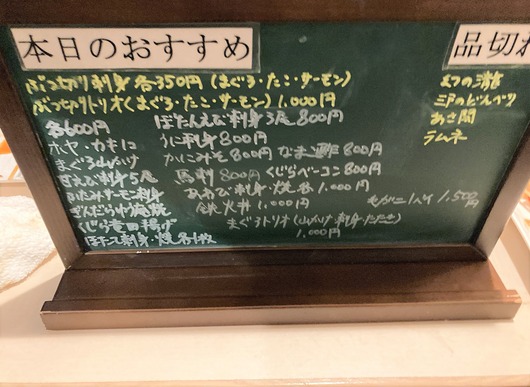 本日のおすすめ
ぶつ切り刺身 各350円(まぐろ・たこ・サーモン)
ぶつ切りトリオ(まぐろ・たこ・サーモン) 1,000円
各600円
ホヤ・カキ
まぐろ山かけ
甘えび刺身5尾
サーモン刺身
くじら竜田揚げ
ほたて刺身・焼 各1枚
ぼたんえび刺身3尾 800円
うに刺身 800円
かにみそ 800円 なまこ酢 800円
馬刺 800円 くじらベーコン 800円
あわび刺身・焼 各1,000円
鉄火丼 1,000円
まぐろトリオ(山かけ・刺身・たたき)
1,000円
毛がに一ハイ 1,500円
品切れ
あさ開
ラムネ